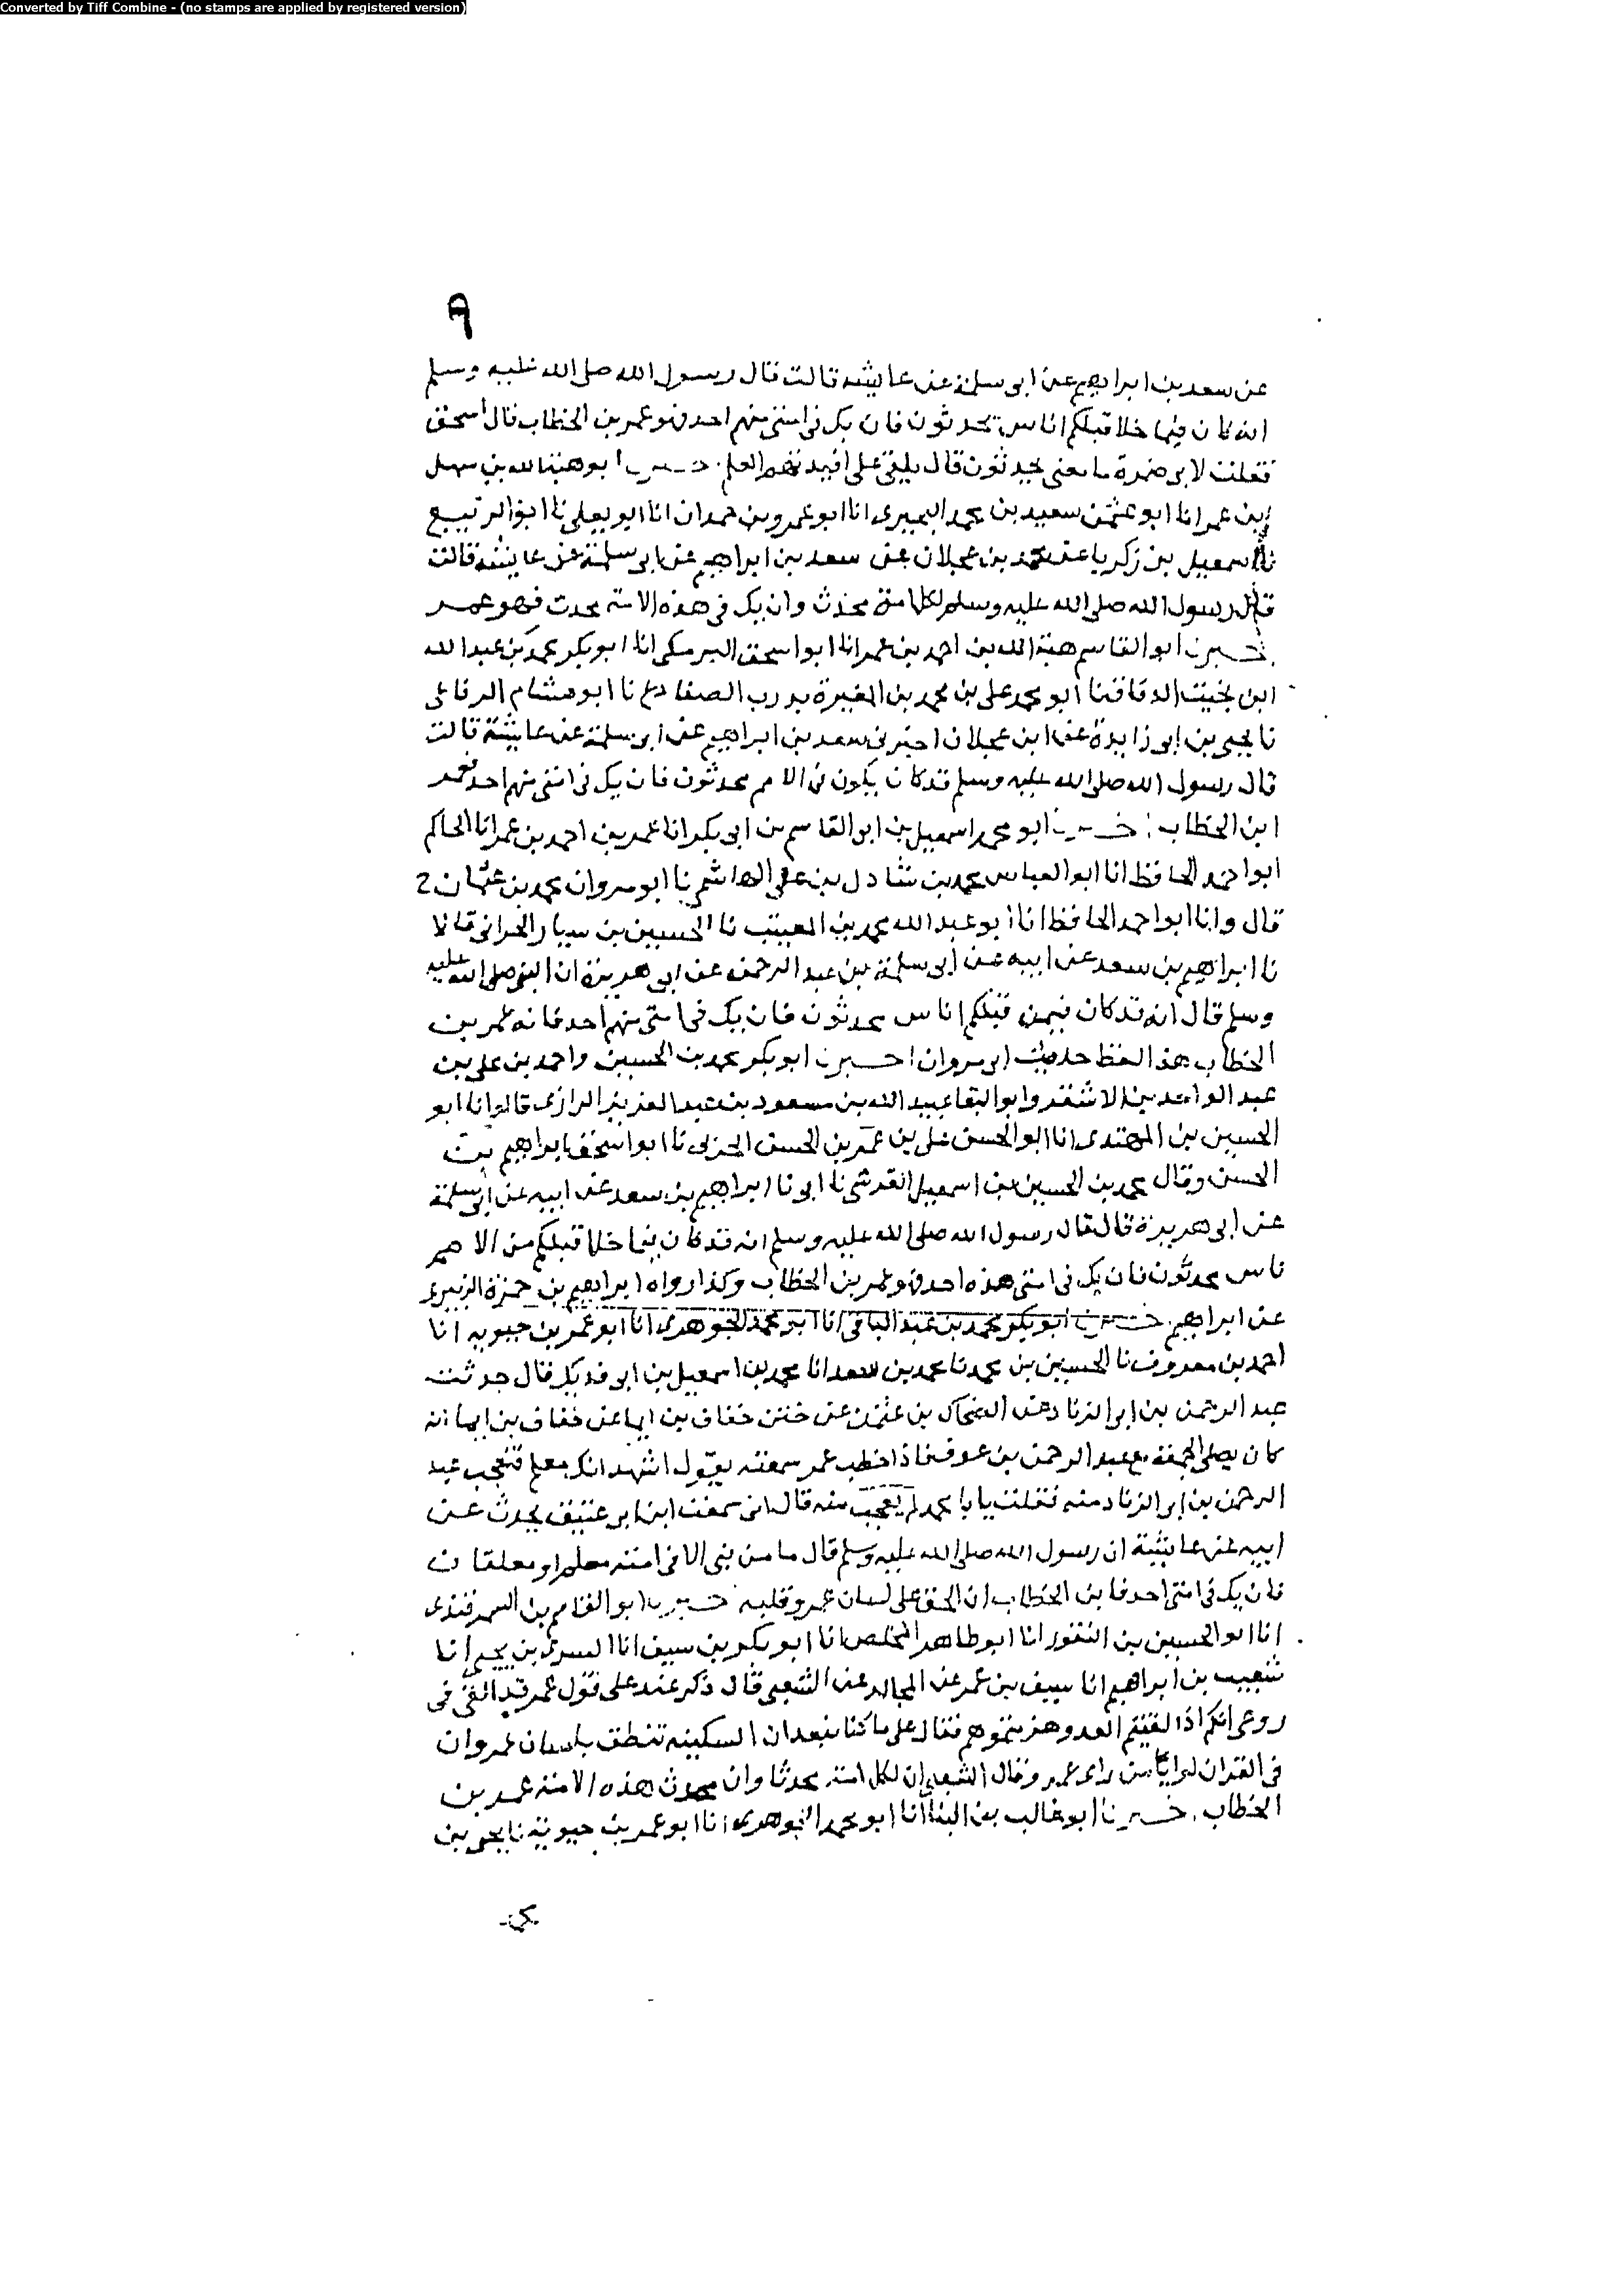 Converted by Tiff Combine - (no stamps are applied by registered version)
٩
عن سعد بن ابراهيم عن ابى سلمة عن عايشه قالت قال رسول الله صلى الله عليه وسلم
انه كان فيما خلا قبلكم اناس يحدثون فان يك فى امتى منهم احد فهو عمر بن الخطاب قال اسحق
فقلت لابى ضمرة ما معنى يحدثون قال يلقى على افيدتهم العلم ابو هبة الله بن سهل
ابن عمر انا ابو عثمن سعيد بن محمد البحيرى انا ابو عمرو بن حمدان انا ابو يعلى نا ابو الربيع
نا اسمعيل بن زكريا عن محمد بن عجلان عن سعد بن ابراهيم عن ابى سلمة عن عايشة قالت
قال رسول الله صلى الله عليه وسلم لكل امة محدث وان يك فى هذه الامة محدث فهو عمر
خبرنا ابو القاسم هبة الله بن احمد بن عمر انا ابو اسحق البرمكى انا ابو بكر محمد بن عبد الله
ابن بخيت الدقاق نا ابو محمد على بن محمد بن المغيرة بدرب الصفادع نا ابو هشام الرفاعى
نا يحيى بن ابى زايدة عن ابن عجلان اخبرنى سعد بن ابراهيم عن ابى سلمة عن عايشة قالت
قال رسول الله صلى الله عليه وسلم قد كان يكون فى الامم محدثون فان يك فى امتى منهم احد فعمر
ابن الخطاب خبرنا ابو محمد اسمعيل بن ابو القاسم بن ابى بكر انا عمر بن احمد بن عمر انا الحاكم
ابو احمد الحافظ انا ابو العباس محمد بن شادل بن على الهاشمى نا ابو مروان محمد بن عثمان
قال وانا ابو احمد الحافظ انا ابو عبد الله محمد بن المسيب نا الحسين بن سيار الحرانى قالا
نا ابراهيم بن سعد عن ابيه عن ابى سلمة بن عبد الرحمن عن ابى هريرة ان النبى صلى الله عليه
وسلم قال انه قد كان فيمن قبلكم اناس يحدثون فان يك فى امتى منهم احد فانه عمر بن
الخطاب هذا لفظ حديث ابى مروان اخبرنا ابو بكر محمد بن الحسين واحمد بن على بن
عبد الواحد بن الاشقر وابو البقا عبيد الله بن مسعود بن عبد العزيز الرازى قالوا انا ابو
الحسين بن المهتدى انا ابو الحسن على بن عمر بن الحسن الحربى نا ابو اسحق ابراهيم بن
الحسن وقال محمد بن الحسين بن اسمعيل القرشى نا ابو نا ابراهيم بن سعد عن ابيه عن ابى سلمة
عن ابى هريرة قال قال رسول الله صلى الله عليه وسلم انه قد كان فيما خلا قبلكم من الامم
ناس يحدثون فان يك فى امتى هذه احد فهو عمر بن الخطاب وكذا رواه ابراهيم بن حمزة الزبيرى
عن ابراهيم خبرنا ابو بكر محمد بن عبد الباقى انا ابو محمد الجوهرى انا ابو عمر بن حيويه انا
احمد بن معروف نا الحسين بن محمد نا محمد بن سعد انا محمد بن اسمعيل بن ابو فديك قال حدثت
عبد الرحمن بن ابو الزناد عن الضحاك بن عثمن عن ختن خفاف بن ايما عن خفاف بن ايما انه
كان يصلى الجمعة مع عبد الرحمن بن عوف فاذا خطب عمر سمعته يقول اشهد انك معلم فتعجب عبد
الرحمن بن ابو الزناد منه فقلت يا با محمد لم تعجب منه قال انى سمعت ابن ابو عتيق يحدث عن
ابيه عن عايشة ان رسول الله صلى الله عليه وسلم قال ما من نبى الا فى امته معلم او معلمان
فان يك فى امتى احد فابن الخطاب ان الحق على لسان عمر وقلبه خبرنا ابو القاسم بن السمرقندى
انا ابو الحسين بن النقور انا ابو طاهر المخلص انا ابو بكر بن سيف انا السرى بن يحيى انا
شعيب بن ابراهيم انا سيف بن عمر عن المجالد عن الشعبى قال ذكر عند على قول عمر قد القى فى
روعى انكم اذا لقيتم العدو هزمتموهم فقال على ما كنا نبعد ان السكينه تنطق بلسان عمر وان
فى القران لرايا من راى عمر وقال الشعبى ان لكل امة محدثا وان محدث هذه الامة عمر بن
الخطاب خبرنا ابو غالب بن البنا انا ابو محمد الجوهرى انا ابو عمر بن حيويه نا يحيى بن